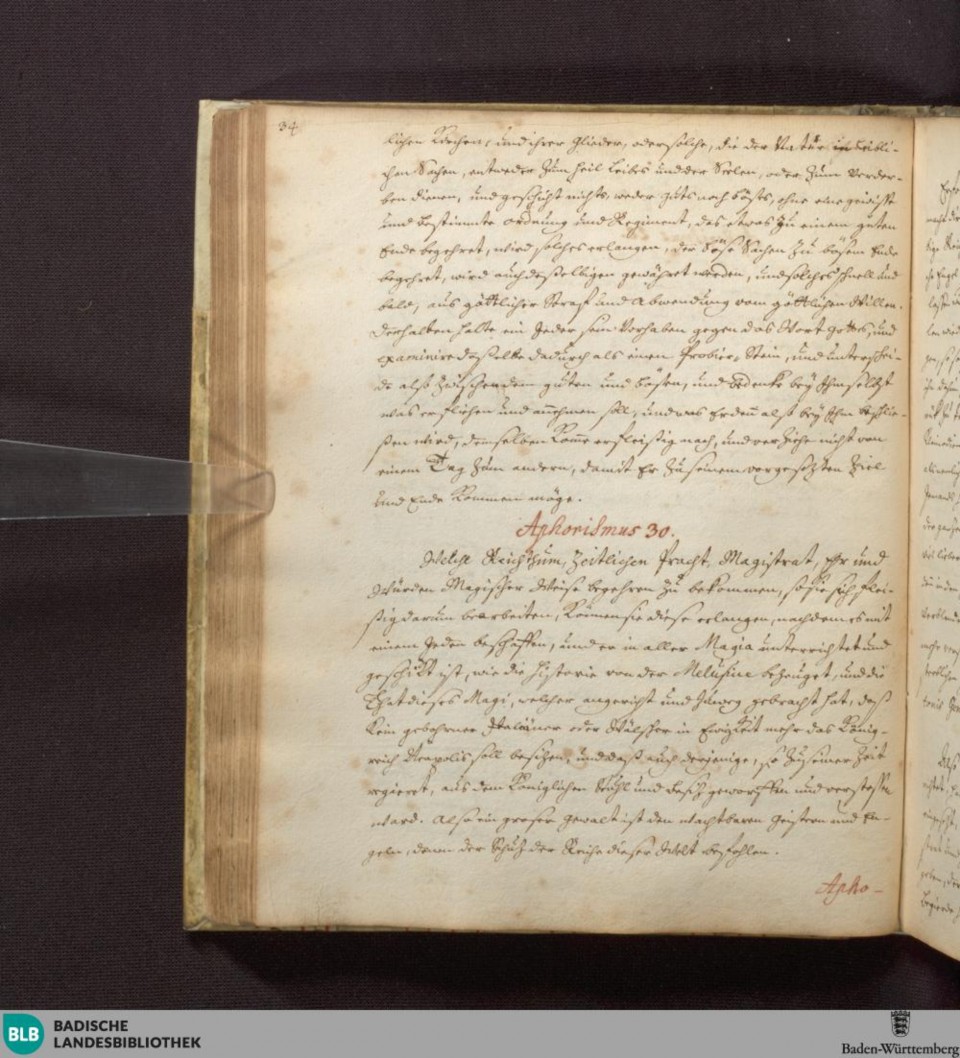 34
lichen Kirchen, und ihrer Glieder, oder solche, die der Natur in leibli-
chen Sachen, entweder zum Heil Leibes und der Seelen, oder zum Verder-
ben dienen, und geschicht nichts, weder guts noch böses, ohne eine gewisse
und bestimmte ordnung und Regiment, das etwas zu einem guten
Ende begehret, wird solches erlangen, der böse Sachen zu bösem Ende
begehret, wird auch desselbigen gewähret werden, und solches schnell und
bald, aus göttlicher Straf und Abwendung vom göttlichen Willen.
Derhalben halte ein Jeder sein Vorhaben gegen das Wort Gottes, und
examinire dasselbe dadurch als einen Probier-Stein, und unterschei-
de alß zwischen dem guten und bösen, und bedenke bey ihm selbst
was er fliehen und annehmen soll, und was er denn alß bey ihm beschlie-
ßen wird, demselben komme er fleißig nach, und verziehe nicht von
einem Tag zum andern, damit Er zu seinem vorgesetzten Ziel
und Ende kommen möge.
Aphorismus 30.
Welche Reichthum, zeitlichen Pracht, Magistrat, Ehr und
Würden Magischer Weise begehren zu bekommen, so sie sich flei-
ßig darum bearbeiten, können sie diese erlangen, nachdem es mit
einem Jeden beschaffen, und er in aller Magia unterrichtet und
geschickt ist, wie die Historie von der Melusine bezeuget, und die
That dieses Magi, welcher angericht und zuweg gebracht hat, daß
kein gebohrner Italiäner oder Wälscher in Ewigkeit mehr das König-
reich Neapolis soll besitzen, und daß auch derjenige, so zu seiner Zeit
regieret, aus dem Königlichen Stuhl und Besitz geworffen und verstossen
ward. Also ein groser Gewalt ist den Machtbaren Geistern und En-
geln, denen der Schutz der Reiche dieser Welt befohlen.
Apho-
BLB
BADISCHE
LANDESBIBLIOTHEK
Baden-Württemberg